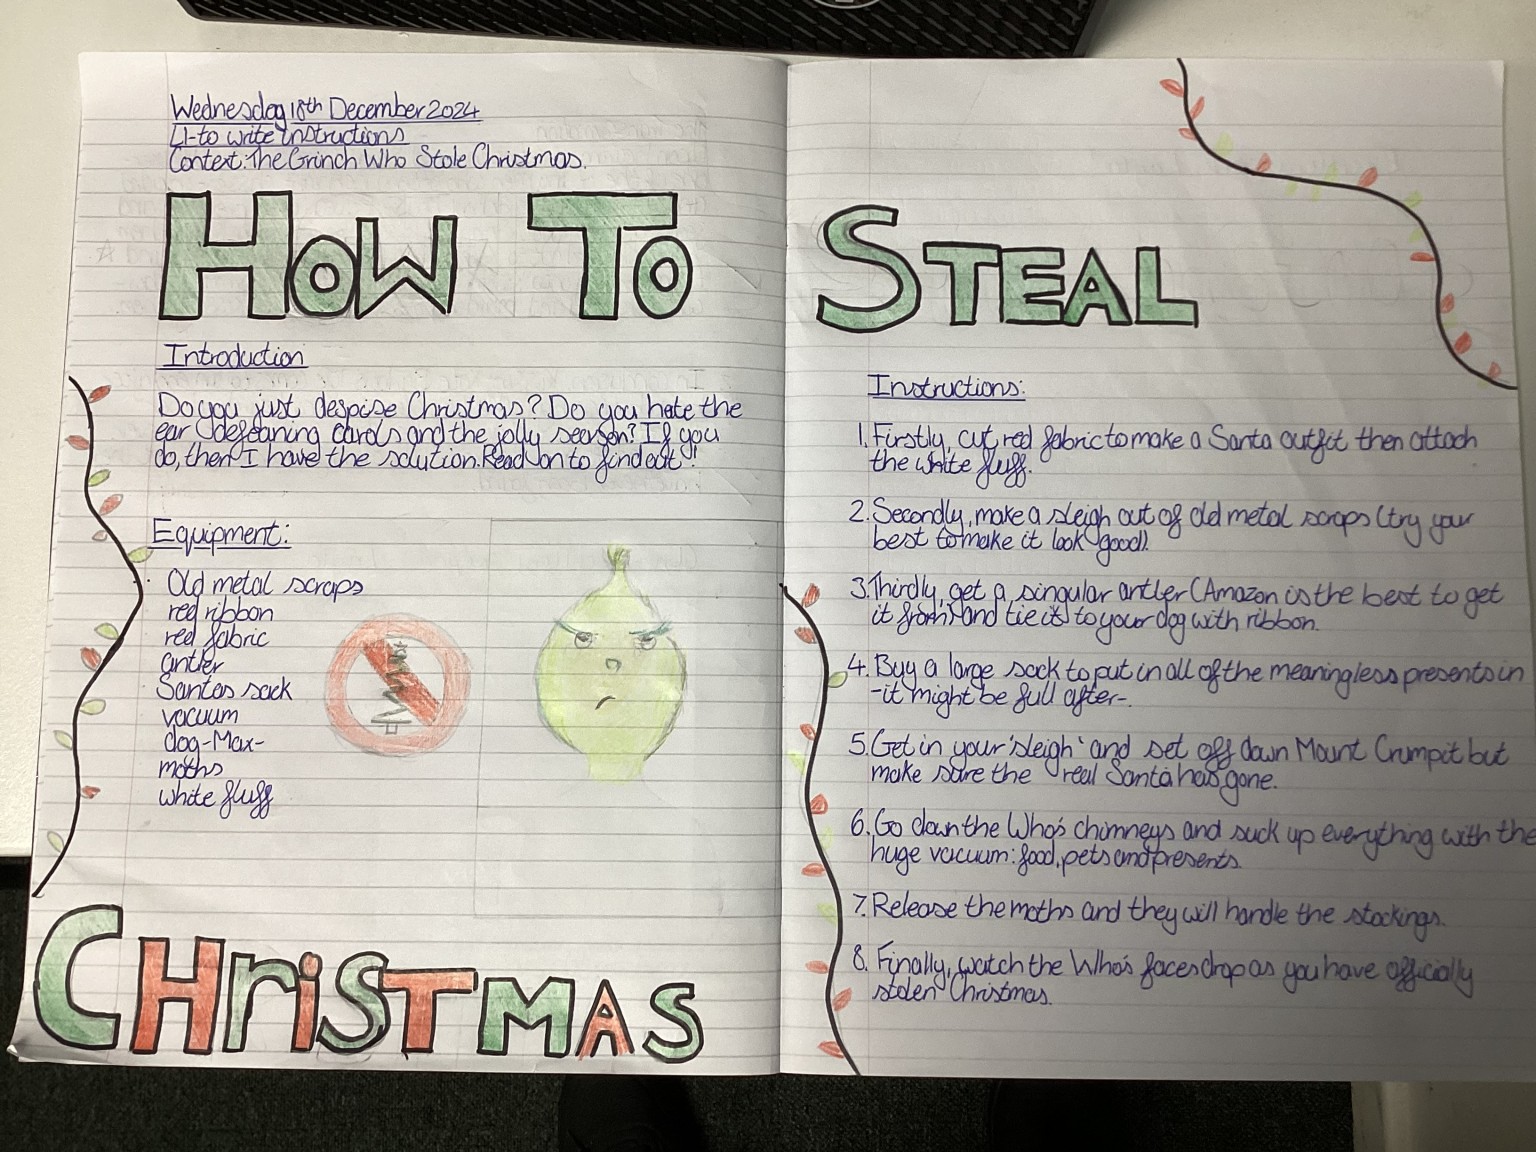 Wednesday 18th December 2024
LI-to write instructions
Context: The Grinch Who Stole Christmas.
HOW TO
STEAL
Introduction
Do you just despise Christmas? Do you hate the
ear defeaning carols and the jolly season? If you
do, then I have the solution. Read on to find out!
Equipment:
Old metal scraps
red ribbon
red fabric
antler
Santas sack
vacuum
dog-Max-
moths
white fluff
CHriSTMAS
Instructions:
1. Firstly, cut red fabric to make a Santa outfit then attach
the white fluff.
2. Secondly, make a sleigh out of old metal scraps (try your
best to make it look good).
3. Thirdly, get a singular antler (Amazon is the best to get
it from) and tie it to your dog with ribbon.
4. Buy a large sack to put in all of the meaningless presents in
-it might be full after-.
5. Get in your 'sleigh' and set off down Mount Crumpit but
make sure the real Santa has gone.
6. Go down the Who's chimneys and suck up everything with the
huge vacuum: food, pets and presents.
7. Release the moths and they will handle the stockings.
8. Finally, watch the Who's faces drop as you have officially
stolen Christmas.